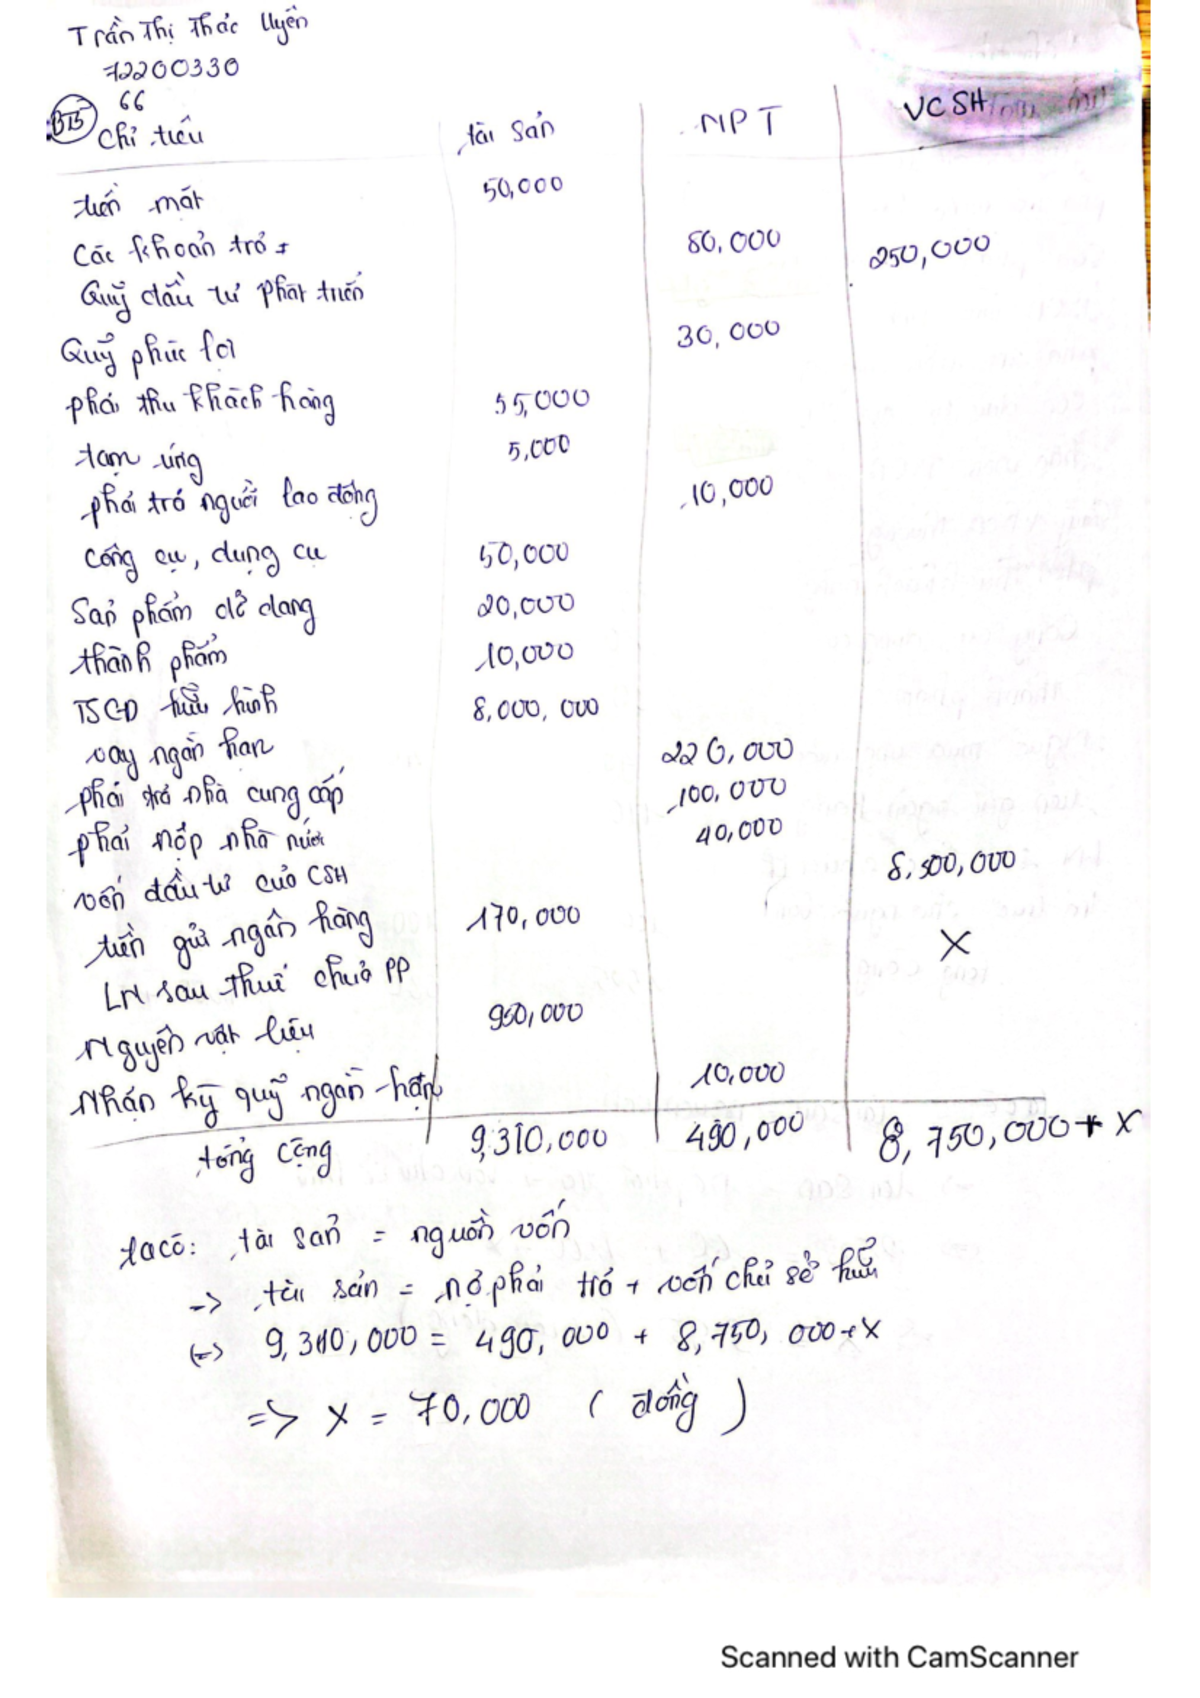 Trần Thị Thác Uyên
72200330
66
BT5 Chỉ tiêu tài sản NPT VCSH
tiền mặt 50,000
Các khoản trả 80,000 250,000
Quỹ đầu tư phát triển
Quỹ phúc lợi 30,000
phải thu khách hàng 55,000
tạm ứng 5,000
phải trả người lao động 10,000
Công cụ, dụng cụ 50,000
Sản phẩm dở dang 20,000
thành phẩm 10,000
TSCĐ hữu hình 8,000,000
vay ngắn hạn 220,000
phải trả nhà cung cấp 100,000
phải nộp nhà nước 40,000
vốn đầu tư của CSH 8,500,000
tiền gửi ngân hàng 170,000
LN sau thuế chưa PP X
Nguyên vật liệu 950,000
Nhận ký quỹ ngắn hạn 10,000
tổng cộng 9,310,000 490,000 8,750,000 + X
ta có: tài sản = nguồn vốn
-> tài sản = nợ phải trả + vốn chủ sở hữu
<=> 9,310,000 = 490,000 + 8,750,000 + X
=> X = 70,000 ( đồng )
Scanned with CamScanner